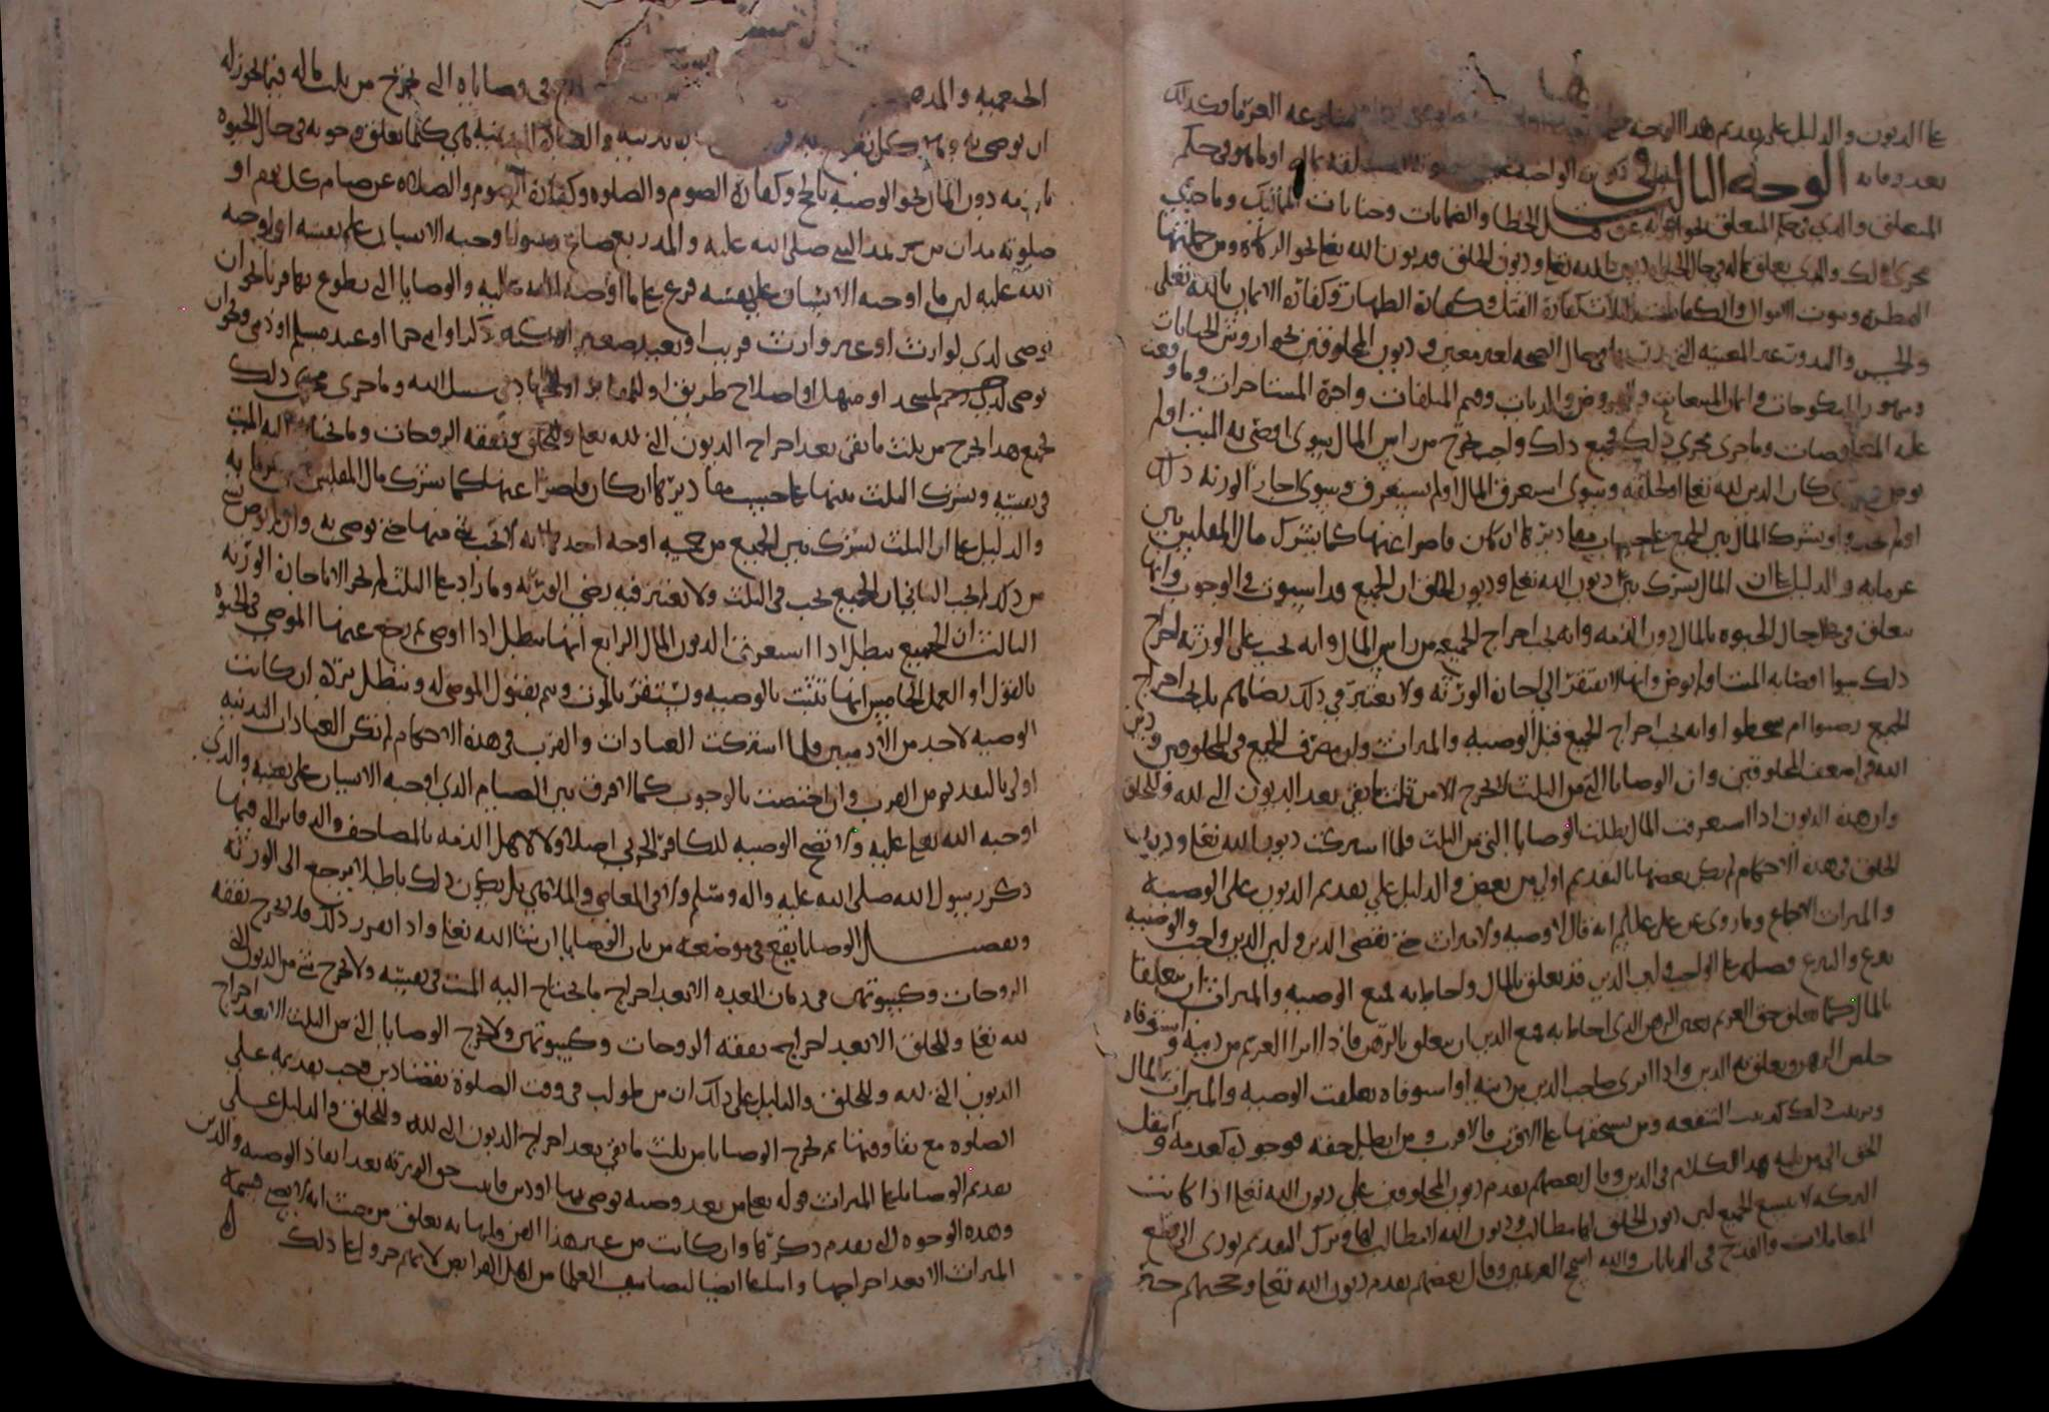 عا الديون والدليل على تقديم هذا الوجه منازعه الغرما وكذلك
بعد وفاته الوجه الثالث في ديون الواجبه او ما هو في حكم
المتعلق والذي في حكم المتعلق نحو الخطا والضمانات وجنايات المماليك وما جرى
مجرى ذلك والذي يتعلق بماله في حال الحيوه ديون لله تعا وديون الخلق فديون الله تعا نحو الزكاه ومن جملتها
الفطره وبيوت الاموال والكفارات الثلاث كفارة القتل وكفارة الظهار وكفارة الايمان بالله تعلى
والخمس والنذور غير المعينه التي في حال الصحه لغير معين وديون المخلوقين نحو اروش الجنايات
ومهور المنكوحات واثمان المبيعات والقروض والديات وقيم المتلفات واجرة المستاجرات وما وقعت
عليه المعاوضات وما جرى مجرى ذلك فجميع ذلك واجب يخرج من راس المال سوى اوصى به الميت او لم
يوص وسوى كان الدين لله تعا او لخلقه وسوى استغرق المال او لم يستغرق وسوى اجاز الورثه ذلك
او لم يجيزوا ويشترك المال بين الجميع على حساب مقاديرها ان كان قاصرا عنها كما يشترك مال المفلس بين
غرمايه والدليل على ان المال يشترك بين ديون الله تعا وديون الخلق ان الجميع قد استوت في الوجوب وانها
تتعلق في حال الحيوه بالمال دون الذمه وانه يجب اخراج الجميع من راس المال وانه يجب على الورثه اخراج
ذلك سوا اوصا به الميت او لم يوص وانها لا تفتقر الى اجازة الورثه ولا يعتبر في ذلك رضاهم بل يجب اخراج
الجميع رضوا ام سخطوا وانه يجب اخراج الجميع قبل الوصيه والميراث ولان مصرف الجميع في المخلوقين ودين
الله في اضعف المخلوقين وان الوصايا التي من الثلث لا تخرج الا من ثلث ما بقي بعد الديون التي لله وللخلق
وان هذه الديون اذا استغرقت المال بطلت الوصايا التي من الثلث فلما اشتركت ديون الله تعا وديون
الخلق في هذه الاحكام لم يكن بعضها بالتقديم اولى من بعض والدليل على تقديم الديون على الوصيه
والميراث الاجماع وما روى عن علي عليلم انه قال لا وصيه ولا ميراث حتى يقضى الدين ولان الدين واجب والوصيه
تبرع والتبرع فضله على الواجب ولان الدين قد تعلق بالمال واحاط به فمنع الوصيه والميراث ان يتعلقا
بالمال كما تعلق حق الغريم بعين الرهن الذي احاط به فمنع الدين ان يتعلق بالرهن فاذا ابرا الغريم من دينه واستوفاه
خلص الرهن وتعلق به الدين واذا ابرى صاحب الدين من دينه او استوفاه تعلقت الوصيه والميراث بالمال
وترتيب ذلك كترتيب الشفعه ومن يستحقها على الاقرب فالاقرب ومن ابطل حقه فوجوده كعدمه وانتقل
الحق الى من يليه هذا الكلام في الدين وقال بعضهم تقدم ديون المخلوقين على ديون الله تعا اذا كانت
التركه لا تتسع الجميع لان ديون الخلق لها مطالب وديون الله لا مطالب لها وترك التقديم يودى الى قطع
المعاملات والقدح في الديانات والله اسمح الغريمين وقال بعضهم تقدم ديون الله تعا وحجتهم خبر
الخثعميه والمذهب في وصاياه التي تخرج من ثلث ماله فيما يجوز له
ان يوصى به وهي كل بدنيه والعباده البدنيه هي كلما تعلق وجوبه في حال الحيوه
بالذمه دون المال نحو الوصيه بالحج وكفارة الصوم والصلوه وكفارة الصوم والصلاه عن صيام كل يوم او
صلوته مدان من بر بمد النبي صلى الله عليه والمد ربع صاع وسوا ما وجبه الانسان على نفسه او اوجبه
الله عليه لان ما اوجبه الانسان على نفسه فرع على ما اوجبه الله عليه والوصايا التي يتطوع بها فيجوز ان
يوصى لذي لوارث او غير وارث قريب او بعيد صغير او كبير ذكرا او انثى حرا او عبد مسلم او ذمي ويجوز ان
يوصى لمسجد او منهل او اصلاح طريق او للمقابر او للجهاد في سبيل الله وما جرى مجرى ذلك
فجميع هذا يخرج من ثلث ما بقى بعد اخراج الديون التي لله تعا وللخلق ونفقه الزوجات وما يحتاج اليه الميت
في نفسه ويشترك الثلث بينها على حسب مقاديرها ان كان قاصرا عنها كما يشترك مال المفلس بين غرمايه
والدليل على ان الثلث يشترك بين الجميع من خمسه اوجه احدها انه لا يجب شي منها حتى يوصى به وان لم يوص بشي
من ذلك لم يجب الثاني ان الجميع يجب في الثلث ولا يعتبر فيه رضى الورثه وما زاد على الثلث لم يجز الا باجازة الورثه
الثالث ان الجميع يبطل اذا استغرق الديون المال الرابع انها تبطل اذا اوصى ثم رجع عنها الموصي في الحيوه
بالقول او العمل الخامس انها تثبت بالوصيه وتستقر بالموت وتتم بقبول الموصى له وتبطل برده ان كانت
الوصيه لاحد من الادميين فلما اشتركت العبادات والقرب في هذه الاحكام لم تكن العبادات البدنيه
اولى بالتقديم من القرب وان اختصت بالوجوب كما لا فرق بين الصيام الذي اوجبه الانسان على نفسه والذي
اوجبه الله تعا عليه ولا تصح الوصيه للكافر الحربي اصلا ولا لاهل الذمه بالمصاحف والدفاتر التي فيها
ذكر رسول الله صلى الله عليه واله وسلم ولا في المعاصي والملاهي بل يكون ذلك باطلا يرجع الى الورثه
وتفصيل الوصايا يقع في موضعه من باب الوصايا ان شا الله تعا واذا تقرر ذلك فلا تخرج نفقه
الزوجات وكسوتهن في زمان العده الا بعد اخراج ما يحتاج اليه الميت في نفسه ولا يخرج شي من الديون التي
لله تعا وللخلق الا بعد اخراج نفقة الزوجات وكسوتهن ولا تخرج الوصايا التي من الثلث الا بعد اخراج
الديون التي لله وللخلق والدليل على ذلك ان من طولب في وقت الصلوة بقضا دين وجب تقديمه على
الصلوه مع بقا وقتها ثم تخرج الوصايا من ثلث ما بقي بعد اخراج الديون التي لله وللخلق والدليل على
تقديم الوصايا على الميراث قوله تعا من بعد وصيه يوصى بها او دين فاثبت حق الورثه بعد انفاذ الوصيه والدين
وهذه الوجوه التي تقدم ذكرها وان كانت من غير هذا الفن فلها به تعلق من حيث انه لا يصح قسمة
الميراث الا بعد اخراجها واتباعا ايضا لتصانيف العلما من اهل الفرايض لانهم جروا على ذلك